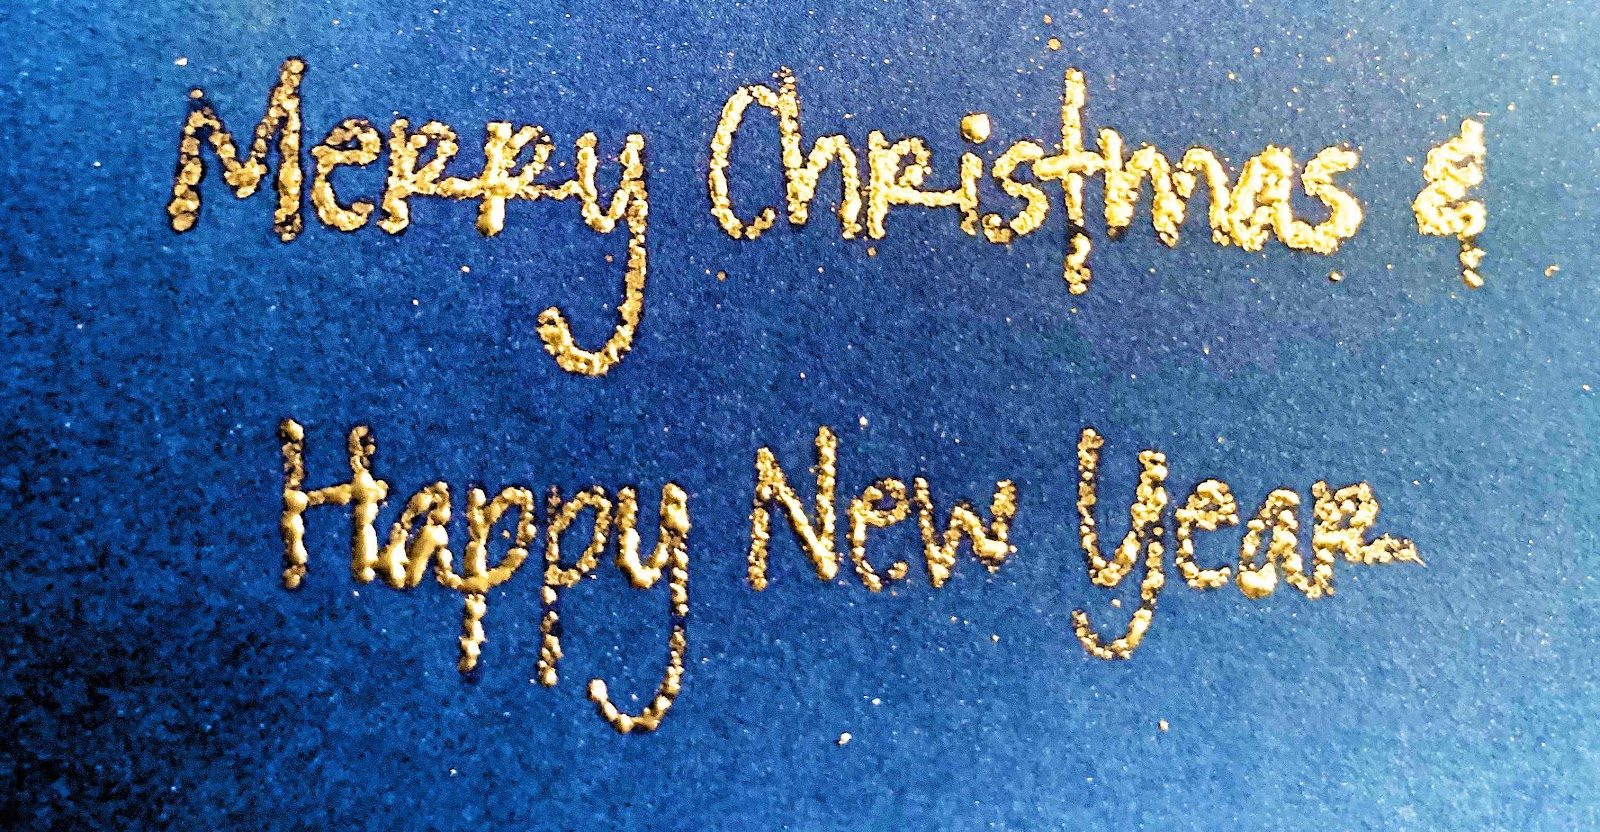 Merry Christmas &
Happy New Year